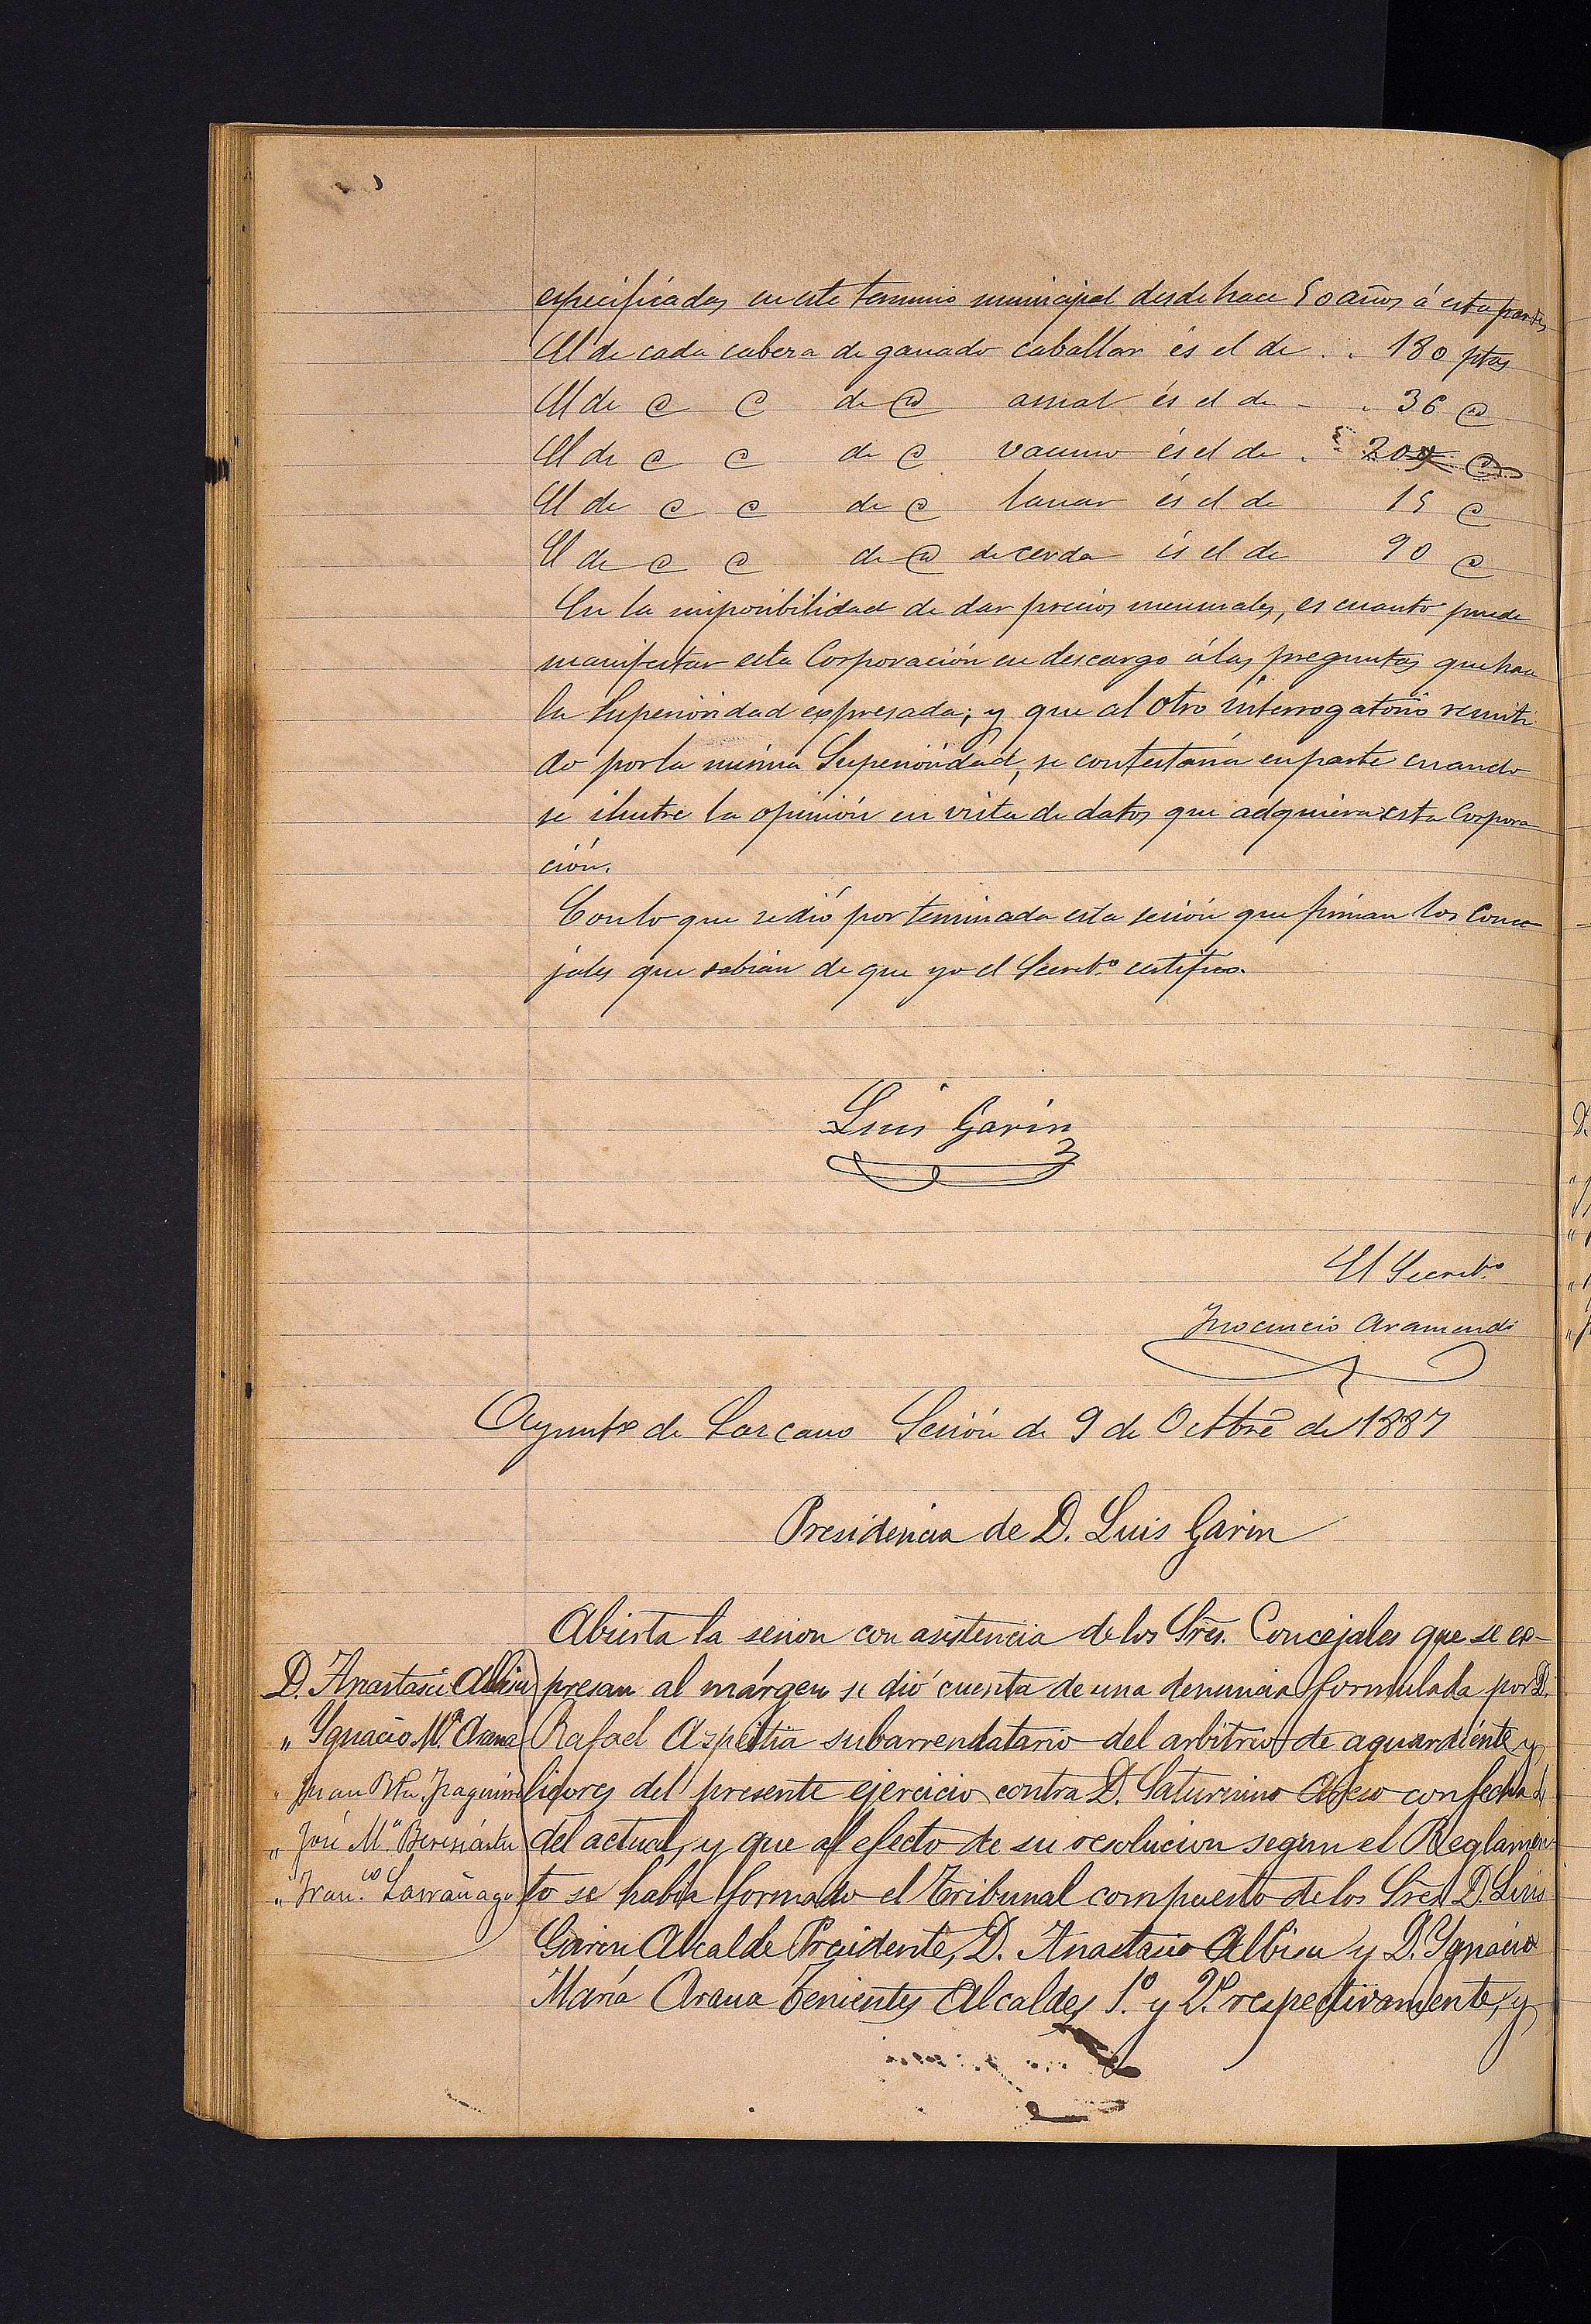 especificadas en este termino municipal desde hace 50 años á esta parte,
El de cada cabeza de ganado caballar és el de . . 180 ptas
El de @ @ de @ asnal és el de - . 36 @
El de @ @ de @ vacuno és el de . 204 @
El de @ @ de @ lanar és el de 15 @
El de @ @ de @ de cerda és el de 90 @
En la imposibilidad de dar precios mensuales, es cuanto puede
manifestar esta Corporación en descargo á las preguntas que hace
la Superioridad expresada; y que al otro interrogatorio remiti
do por la misma Superioridad, se contestaría en parte cuando
se ilustre la opinión en vista de datos que adquiera esta Corpora
ción.
Con lo que se dió por terminada esta sesión que firman los Conce
jales que sabían de que yo el Secret.º certifico.
Luis Garin
El Secret.º
Inocencio Aramendi
Ayunt.º de Lazcano Sesión de 9 de Octbre de 1887
Presidencia de D. Luis Garin
Abierta la sesion con asistencia de los Sres. Concejales que se ex-
D. Anastasio Albisu presan al márgen se dió cuenta de una denuncia formulada por D.
" Ygnacio M.ª Arana Rafael Azpeitia subarrendatario del arbitrio de aguardiente y
" Juan Bta. licores del presente ejercicio contra D. Saturnino con fecha
" José M.ª del actual, y que al efecto de su resolucion segun el Reglamen
" Fran.co Larrañaga to se habia formado el Tribunal compuesto de los Sres. D. Luis
Garin Alcalde Presidente, D. Anastasio Albisu y D. Ygnacio
María Arana Tenientes Alcaldes 1.º y 2.º respectivamente, y